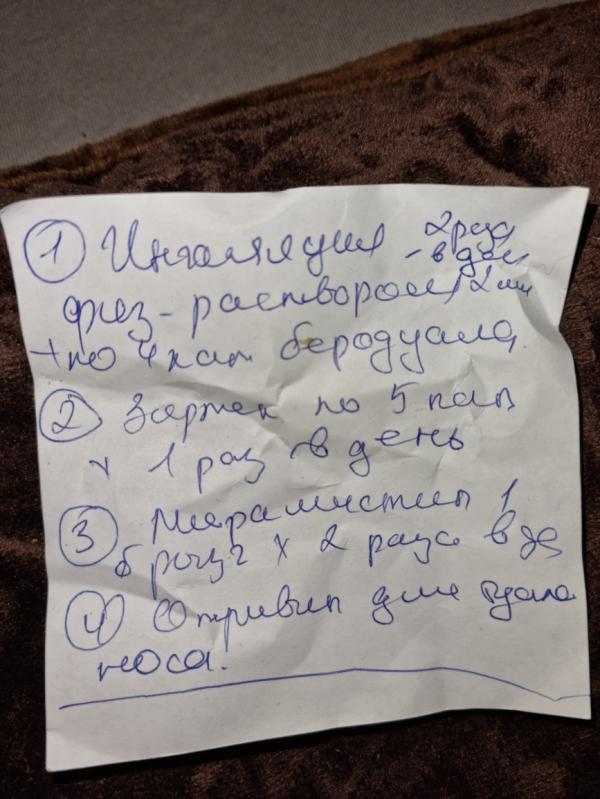 ① Ингаляция 2 раза
- в день
физ-раствором 2 мл
+ по 4 кап беродуала
② Зартек по 5 кап
х 1 раз в день
③ Мирамистин 1
брызг х 2 раза в де
④ Отривин для
носа!